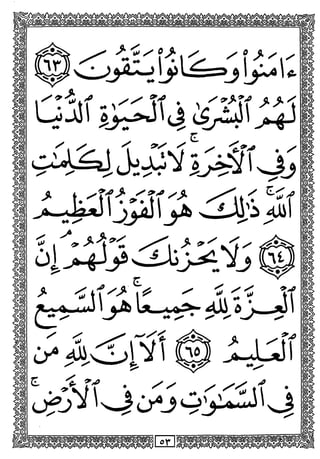 ءَامَنُوا۟ وَكَانُوا۟ يَتَّقُونَ ٦٣
لَهُمُ ٱلْبُشْرَىٰ فِى ٱلْحَيَوٰةِ ٱلدُّنْيَا
وَفِى ٱلْأَخِرَةِ ۚ لَا تَبْدِيلَ لِكَلِمَٰتِ
ٱللَّهِ ۚ ذَٰلِكَ هُوَ ٱلْفَوْزُ ٱلْعَظِيمُ
٦٤ وَلَا يَحْزُنكَ قَوْلُهُمْ ۘ إِنَّ
ٱلْعِزَّةَ لِلَّهِ جَمِيعًا ۚ هُوَ ٱلسَّمِيعُ
ٱلْعَلِيمُ ٦٥ أَلَآ إِنَّ لِلَّهِ مَن
فِى ٱلسَّمَٰوَٰتِ وَمَن فِى ٱلْأَرْضِ ۗ
٥٣